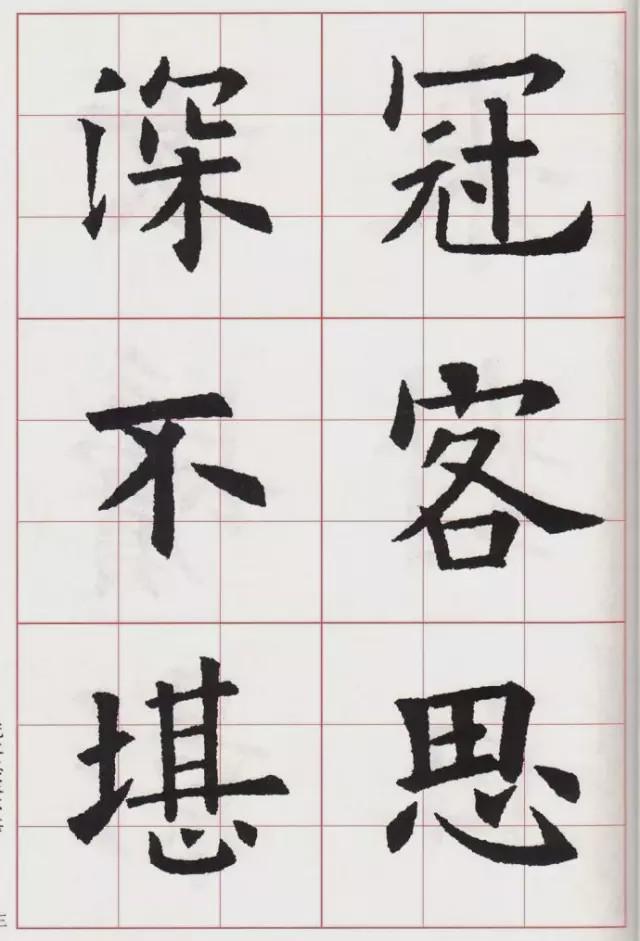 冠客思
深不堪